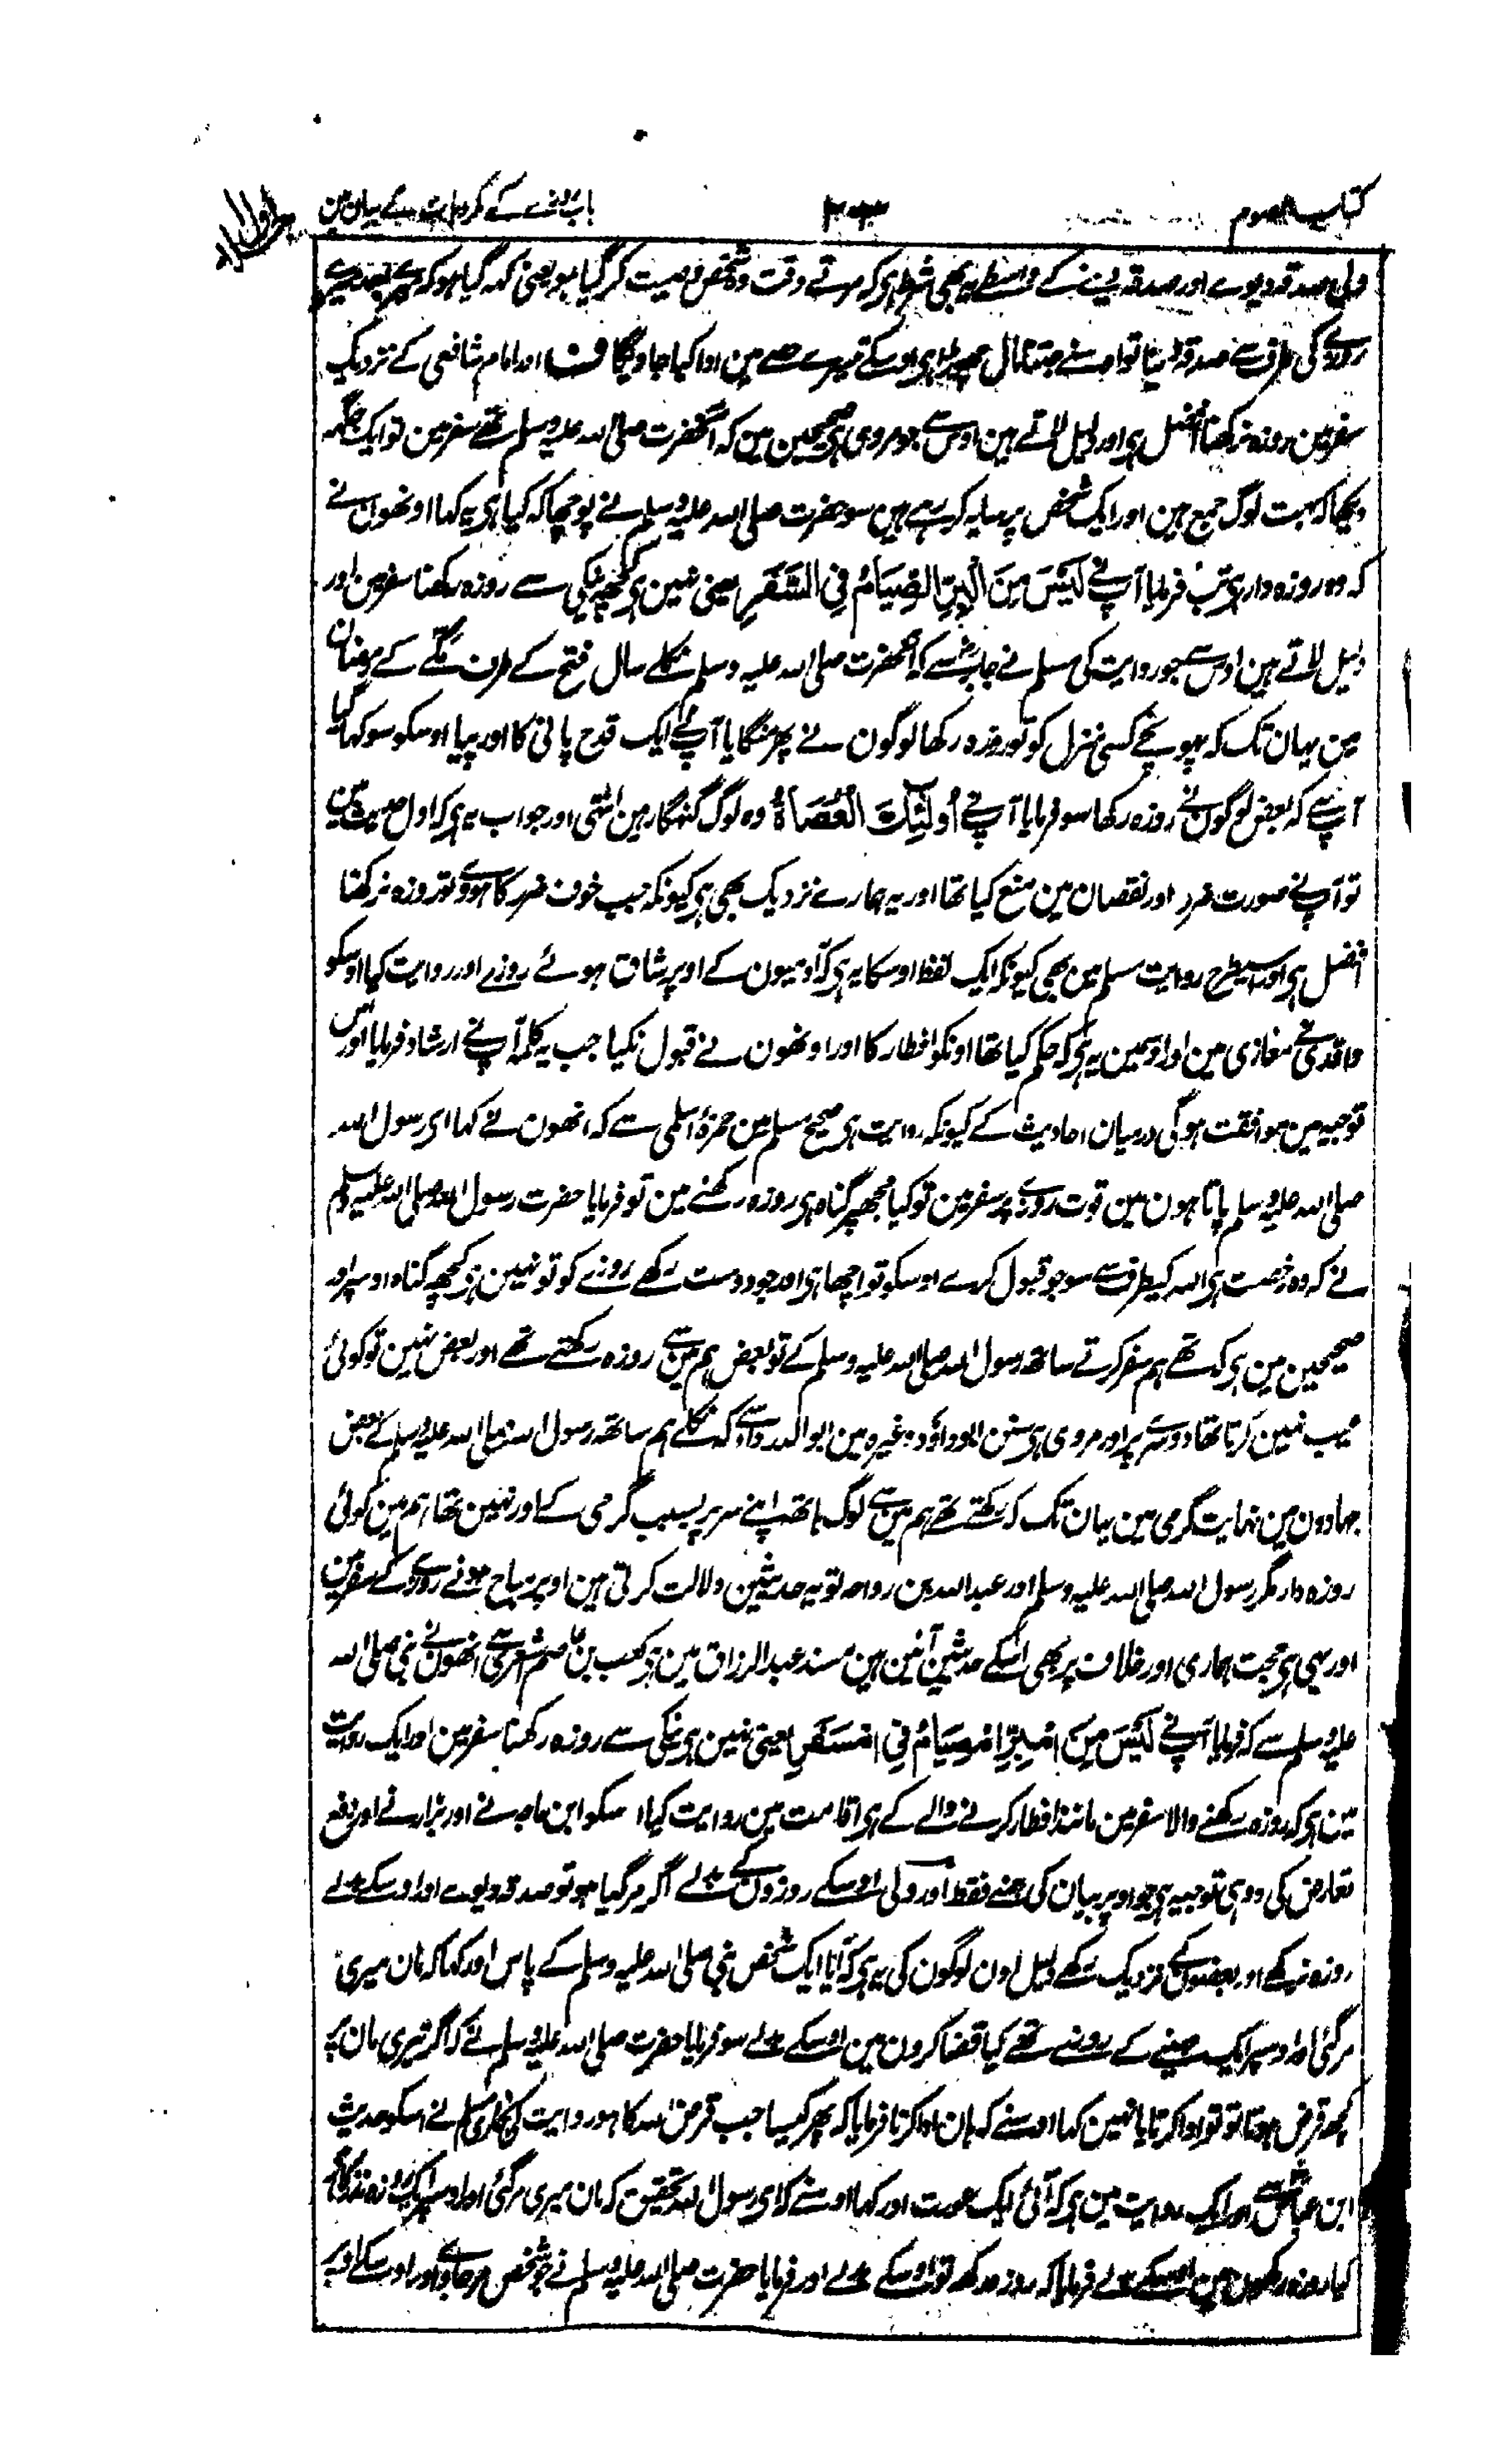 کتاب الصوم ۳۰۳ باب روزے کے مکروہات کے بیان مین
جلد اول
ولی صدقہ دیوے اور صدقہ دینے کے واسطے یہ بھی شرط ہی کہ مرتے وقت وہ شخص وصیت کر گیا ہو یعنی کہہ گیا ہو کہ میرے
روزے کی طرف سے صدقہ دینا تو اوسنے جتنا مال چھوڑا ہی اوسکے تیسرے حصے مین ادا کیا جاویگا ف اور امام شافعی کے نزدیک
سفر مین روزہ نرکھنا افضل ہی اور دلیل لاتے ہین اوس سے جو مروی ہی صحیحین مین کہ آنحضرت صلی اللہ علیہ وسلم تھے سفر مین تو ایک جگہہ
دیکھا کہ بہت لوگ جمع ہین اور ایک شخص پر سایہ کر رہے ہین سو حضرت صلی اللہ علیہ وسلم نے پوچھا کہ کیا ہی یہ کہا اونھون نے
کہ وہ روزہ دار ہی تب فرمایا آپنے لَیْسَ مِنَ الْبِرِّ الصِّیَامُ فِی السَّفَرِ یعنی نہین ہی کچھ نیکی سے روزہ رکھنا سفر مین اور
دلیل لاتے ہین اوس سے جو روایت کی مسلم نے جابر سے کہ آنحضرت صلی اللہ علیہ وسلم نکلے سال فتح کے طرف مکے کے رمضان
مین یہان تک کہ پہونچے کسی منزل کو تو روزہ رکھا لوگون نے پھر منگایا آپنے ایک قدح پانی کا اور پیا اوسکو سو کہا گیا
آپسے کہ بعض لوگون نے روزہ رکھا سو فرمایا آپنے أُولٰئِکَ الْعُصَاةُ وہ لوگ گنہگار ہین انتہی اور جواب یہ ہی کہ اول حدیث مین
تو آپنے صورت ضرر اور نقصان مین منع کیا تھا اور یہ ہمارے نزدیک بھی ہی کیونکہ جب خوف ضرر کا ہووے تو روزہ نرکھنا
افضل ہی اور اسیطرح روایت مسلم مین بھی کیونکہ ایک لفظ اوسکا یہ ہی کہ آدمیون کے اوپر شاق ہوئے روزے اور روایت کیا اوسکو
واقدی نے مغازی مین اور اوسمین یہ ہی کہ حکم کیا تھا اونکو افطار کا اور اونھون نے قبول نکیا جب یہ کلمہ آپنے ارشاد فرمایا اور اس
توجیہ مین موافقت ہوگی درمیان احادیث کے کیونکہ روایت ہی صحیح مسلم مین حمزہ اسلمی سے کہ انھون نے کہا ای رسول اللہ
صلی اللہ علیہ وسلم پاتا ہون مین قوت روزے پر سفر مین تو کیا مجھپر گناہ ہی روزہ رکھنے مین تو فرمایا حضرت رسول اللہ صلی اللہ علیہ وسلم
نے کہ وہ رخصت ہی اللہ کیطرف سے سو جو قبول کرے اوسکو تو اچھا ہی اور جو دوست رکھے روزے کو تو نہین ہی کچھ گناہ اوسپر اور
صحیحین مین ہی کہ تھے ہم سفر کرتے ساتھ رسول اللہ صلی اللہ علیہ وسلم کے تو بعض ہم مین سے روزہ رکھتے تھے اور بعض نہین تو کوئی
عیب نہین کرتا تھا دوسرے پر اور مروی ہی سنن ابو داؤد وغیرہ مین ابو الدرداء سے کہ نکلے ہم ساتھ رسول اللہ صلی اللہ علیہ وسلم کے بعض
جہادون مین نہایت گرمی مین یہان تک کہ رکھتے تھے ہم مین سے لوگ ہاتھ اپنے سر پر بسبب گرمی کے اور نہین تھا ہم مین کوئی
روزہ دار مگر رسول اللہ صلی اللہ علیہ وسلم اور عبداللہ بن رواحہ تو یہ حدیثین دلالت کرتی ہین اوپر مباح ہونے روزے کے سفر مین
اور یہی ہی حجت ہماری اور خلاف پر بھی اسکے حدیثین آئین ہین مسند عبدالرزاق مین ہی کعب بن عاصم اشعری سے انھون نے نبی صلی اللہ
علیہ وسلم سے کہ فرمایا آپنے لَیْسَ مِنَ امْبِرِّ امْصِیَامُ فِی امْسَفَرِ یعنی نہین ہی نیکی سے روزہ رکھنا سفر مین اور ایک روایت
مین ہی کہ روزہ رکھنے والا سفر مین مانند افطار کرنے والے کے ہی اقامت مین روایت کیا اسکو ابن ماجہ نے اور بزار نے اور دفع
تعارض کی وہی توجیہ ہی جو اوپر بیان کی ہمنے فقط اور ولی اوسکے روزون کے بدلے اگر مر گیا ہو تو صدقہ دیوے اور اوسکے بدلے
روزہ نرکھے اور بعضون کے نزدیک رکھے دلیل اون لوگون کی یہ ہی کہ آیا ایک شخص نبی صلی اللہ علیہ وسلم کے پاس اور کہا کہ مان میری
مر گئی اور اوسپر ایک مہینے کے روزے تھے کیا قضا کرون مین اوسکے بدلے سو فرمایا حضرت صلی اللہ علیہ وسلم نے کہ اگر تیری مان پر
کچھ قرض ہوتا تو تو ادا کرتا یا نہین کہا اوسنے کہ ہان ادا کرتا فرمایا کہ پھر کیسا جب قرض اللہ کا ہو روایت کی بخاری مسلم نے اسکو حدیث
ابن عباس سے اور ایک روایت مین ہی کہ آئی ایک عورت اور کہا اوسنے کہ ای رسول اللہ تحقیق کہ مان میری مر گئی اور اوسپر ایک روزہ نذر کا ہی
کیا روزہ رکھون مین اوسکے بدلے فرمایا کہ روزہ رکھ تو اوسکے بدلے اور فرمایا حضرت صلی اللہ علیہ وسلم نے جو شخص مر جاوے اور اوسکے اوپر